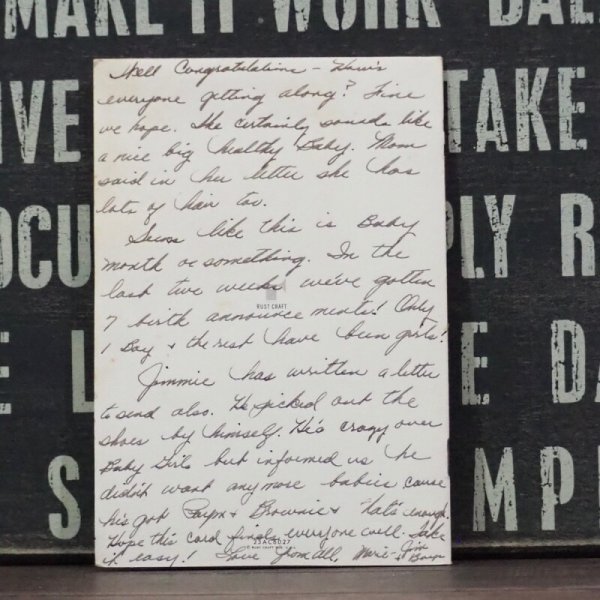 MAKE IT WORK BAL
IVE
TAKE
OCU
PLY R
E L
E D
S
MPL
Well Congratulations - How's
everyone getting along? Fine
we hope. She certainly sounds like
a nice big healthy Baby. Mom
said in her letter she has
lots of hair too.
Seems like this is Baby
month or something. In the
last two weeks we've gotten
7 birth announcements! Only
1 Boy + the rest have been girls!
Jimmie has written a letter
to send also. He picked out the
shoes by himself. He's crazy over
Baby Girls but informed us he
didn't want any more babies cause
his got + Brownie + that's enough.
Hope this card finds everyone well. Take
it easy! Love from all, Marie - Jim
+ Boys
RUST CRAFT
25AC8027
© RUST CRAFT